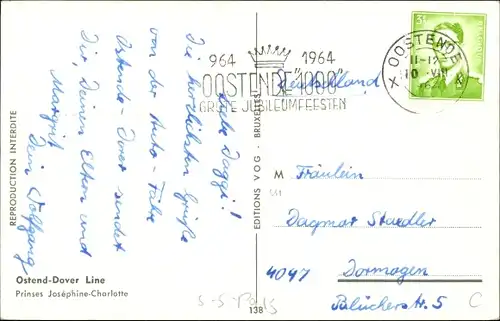 Liebe Daggi!
Die herzlichsten Grüße
von der Auto-Fähre
Ostende-Dover sendet
Dir, Deinen Eltern und
Margrit
Dein Wolfgang
REPRODUCTION INTERDITE
Ostend-Dover Line
Prinses Joséphine-Charlotte
EDITIONS V.O.G - BRUXELLES
138
964 1964
OOSTENDE "1000"
GROTE JUBILEUMFEESTEN
X OOSTENDE X
11-12
10 VIII
3F
Deutschland
M Fräulein
Dagmar Staedler
4047 Dormagen
Blücherstr. 5
S-S-Paris
C